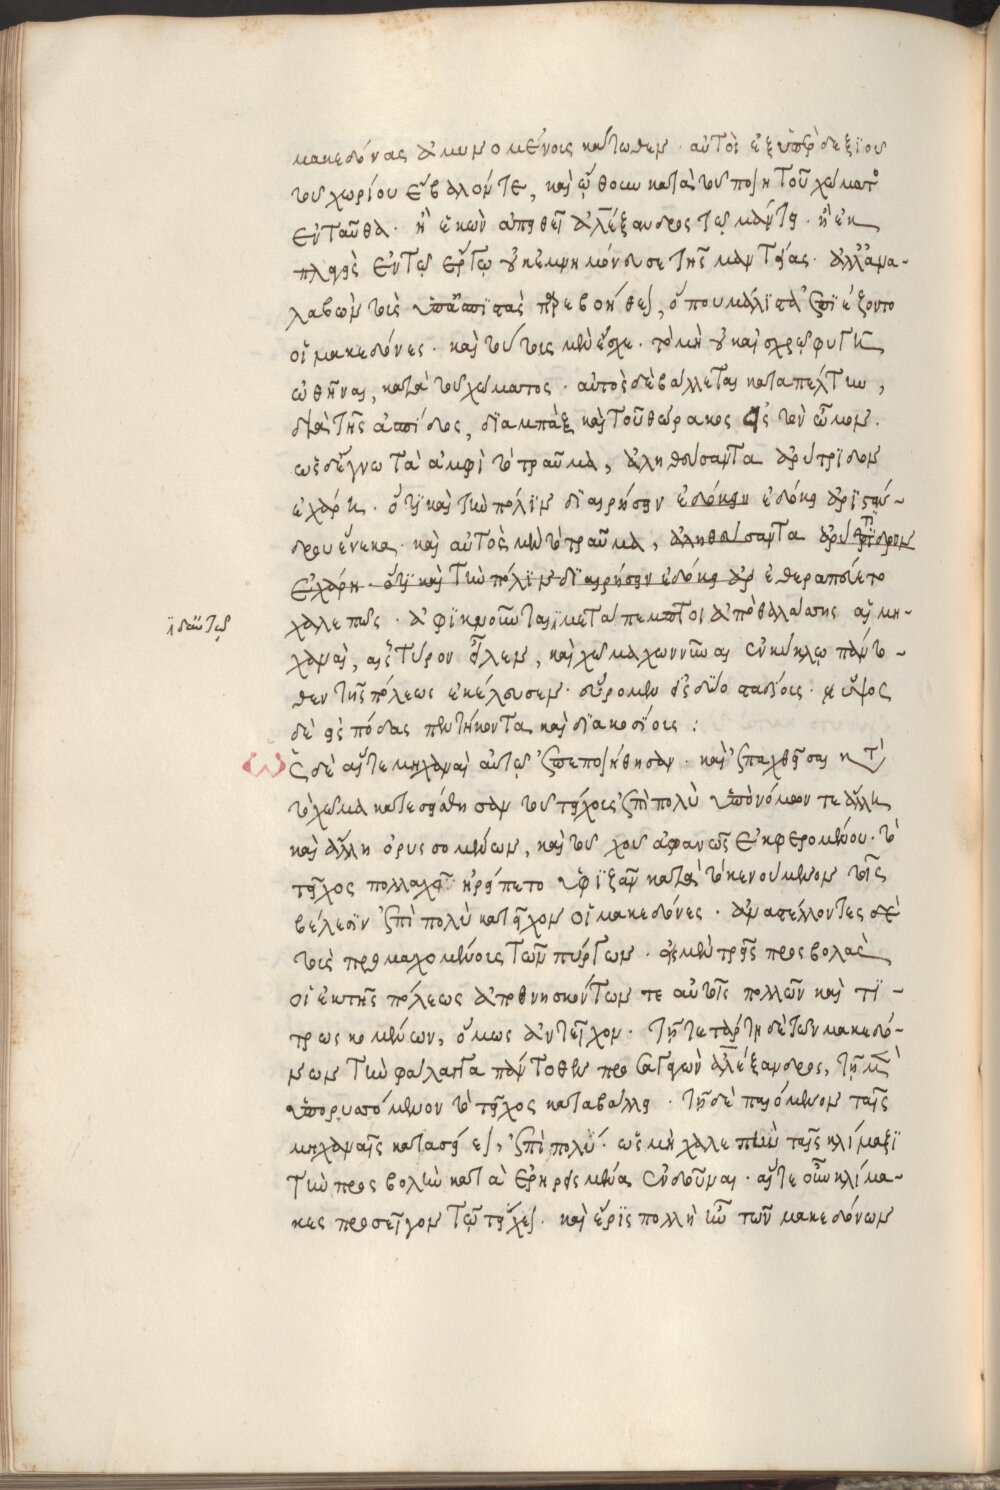 μακεδόνας ἀμυνομένοις κάτωθεν · αὐτοὶ ἐξ ὑπερδεξίου
τοῦ χωρίου ἔβαλόν τε, καὶ ὤθουν κατὰ τοῦ ποιητοῦ χώματος
ἐνταῦθα · ἢ ἑκὼν ἀπειθεῖ ἀλέξανδρος τῷ μάντει · ἢ ἐκ
πληγεὶς ἐν τῷ ἔργῳ οὐκ ἐμνημόνευσε τῆς μαντείας · ἀλλ' ἀνα-
λαβὼν τοὺς ὑπασπιστὰς παρεβοήθει, ὅπου μάλιστα ἐπιέζοντο
οἱ μακεδόνες · καὶ τούτους μὲν ἔσχε · τὸ μὴ οὐκ αἰσχρᾷ φυγῇ
ὠσθῆναι, κατὰ τοῦ χώματος · αὐτὸς δὲ βάλλεται καταπέλτῃ,
διὰ τῆς ἀσπίδος, διαμπὰξ καὶ τοῦ θώρακος ἐς τὸν ὦμον ·
ὡς δὲ ἔγνω τὰ ἀμφὶ τὸ τραῦμα, ἀληθεύσαντα ἀρίστανδρον
ἐχάρη · ὅτι καὶ τὴν πόλιν δὴ αἱρήσειν ἐδόκει ἐδόκει ἀριστάν-
δρου ἕνεκα · καὶ αὐτὸς μὲν τὸ τραῦμα, ἀληθεύσαντα
ἐχάρη ὅτι καὶ τὴν πόλιν δὴ αἱρήσειν ἐδόκει ἀρ ἐθεραπεύετο
χαλεπῶς · ἀφικνοῦνται μετάπεμπτοι ἀπὸ θαλάσσης αἱ μη-
χαναί, αἷς τύρον εἷλεν, καὶ χῶμα χωννύναι ἐν κύκλῳ πάντο-
θεν τῆς πόλεως ἐκέλευσεν · εὖρος μὲν ἐς δύο σταδίους · ὕψος
δὲ ἐς πόδας πεντήκοντα καὶ διακοσίους :
Ὡς δὲ αἵ τε μηχαναὶ αὐτῷ ἐποιήθησαν · καὶ ἐπαχθεῖσαι κατὰ
τὸ χῶμα κατέσεισαν τοῦ τείχους ἐπὶ πολὺ ὑπονόμων τε ἄλλῃ
καὶ ἄλλῃ ὀρυσσομένων, καὶ τοῦ χοῦ ἀφανῶς ἐκφερομένου · τὸ
τεῖχος πολλαχῇ ἠρείπετο ὑφιζάνον κατὰ τὸ κενούμενον τοῖς
βέλεσιν ἐπὶ πολὺ κατεῖχον οἱ μακεδόνες · ἀναστέλλοντες
τοὺς προμαχομένους τῶν πύργων · ἐς μὲν τρεῖς προσβολὰς
οἱ ἐκ τῆς πόλεως ἀποθνησκόντων τε αὐτοῖς πολλῶν καὶ τι-
τρωσκομένων, ὅμως ἀντεῖχον · τῇ τετάρτῃ δὲ τῶν μακεδό-
νων τὴν φάλαγγα πάντοθεν προσαγαγὼν ἀλέξανδρος, τῇ μὲν
ὑπορυσσόμενον τὸ τεῖχος καταβάλλει · τῇ δὲ παιόμενον ταῖς
μηχαναῖς κατασείει, ἐπὶ πολύ · ὡς μὴ χαλεπὴν ταῖς κλίμαξι
τὴν προσβολὴν κατὰ ἐρηριμμένα ἐνδοῦναι · αἵ τε οὖν κλίμα-
κες προσήγοντο τῷ τείχει · καὶ ἔρις πολλὴ ἦν τῶν μακεδόνων